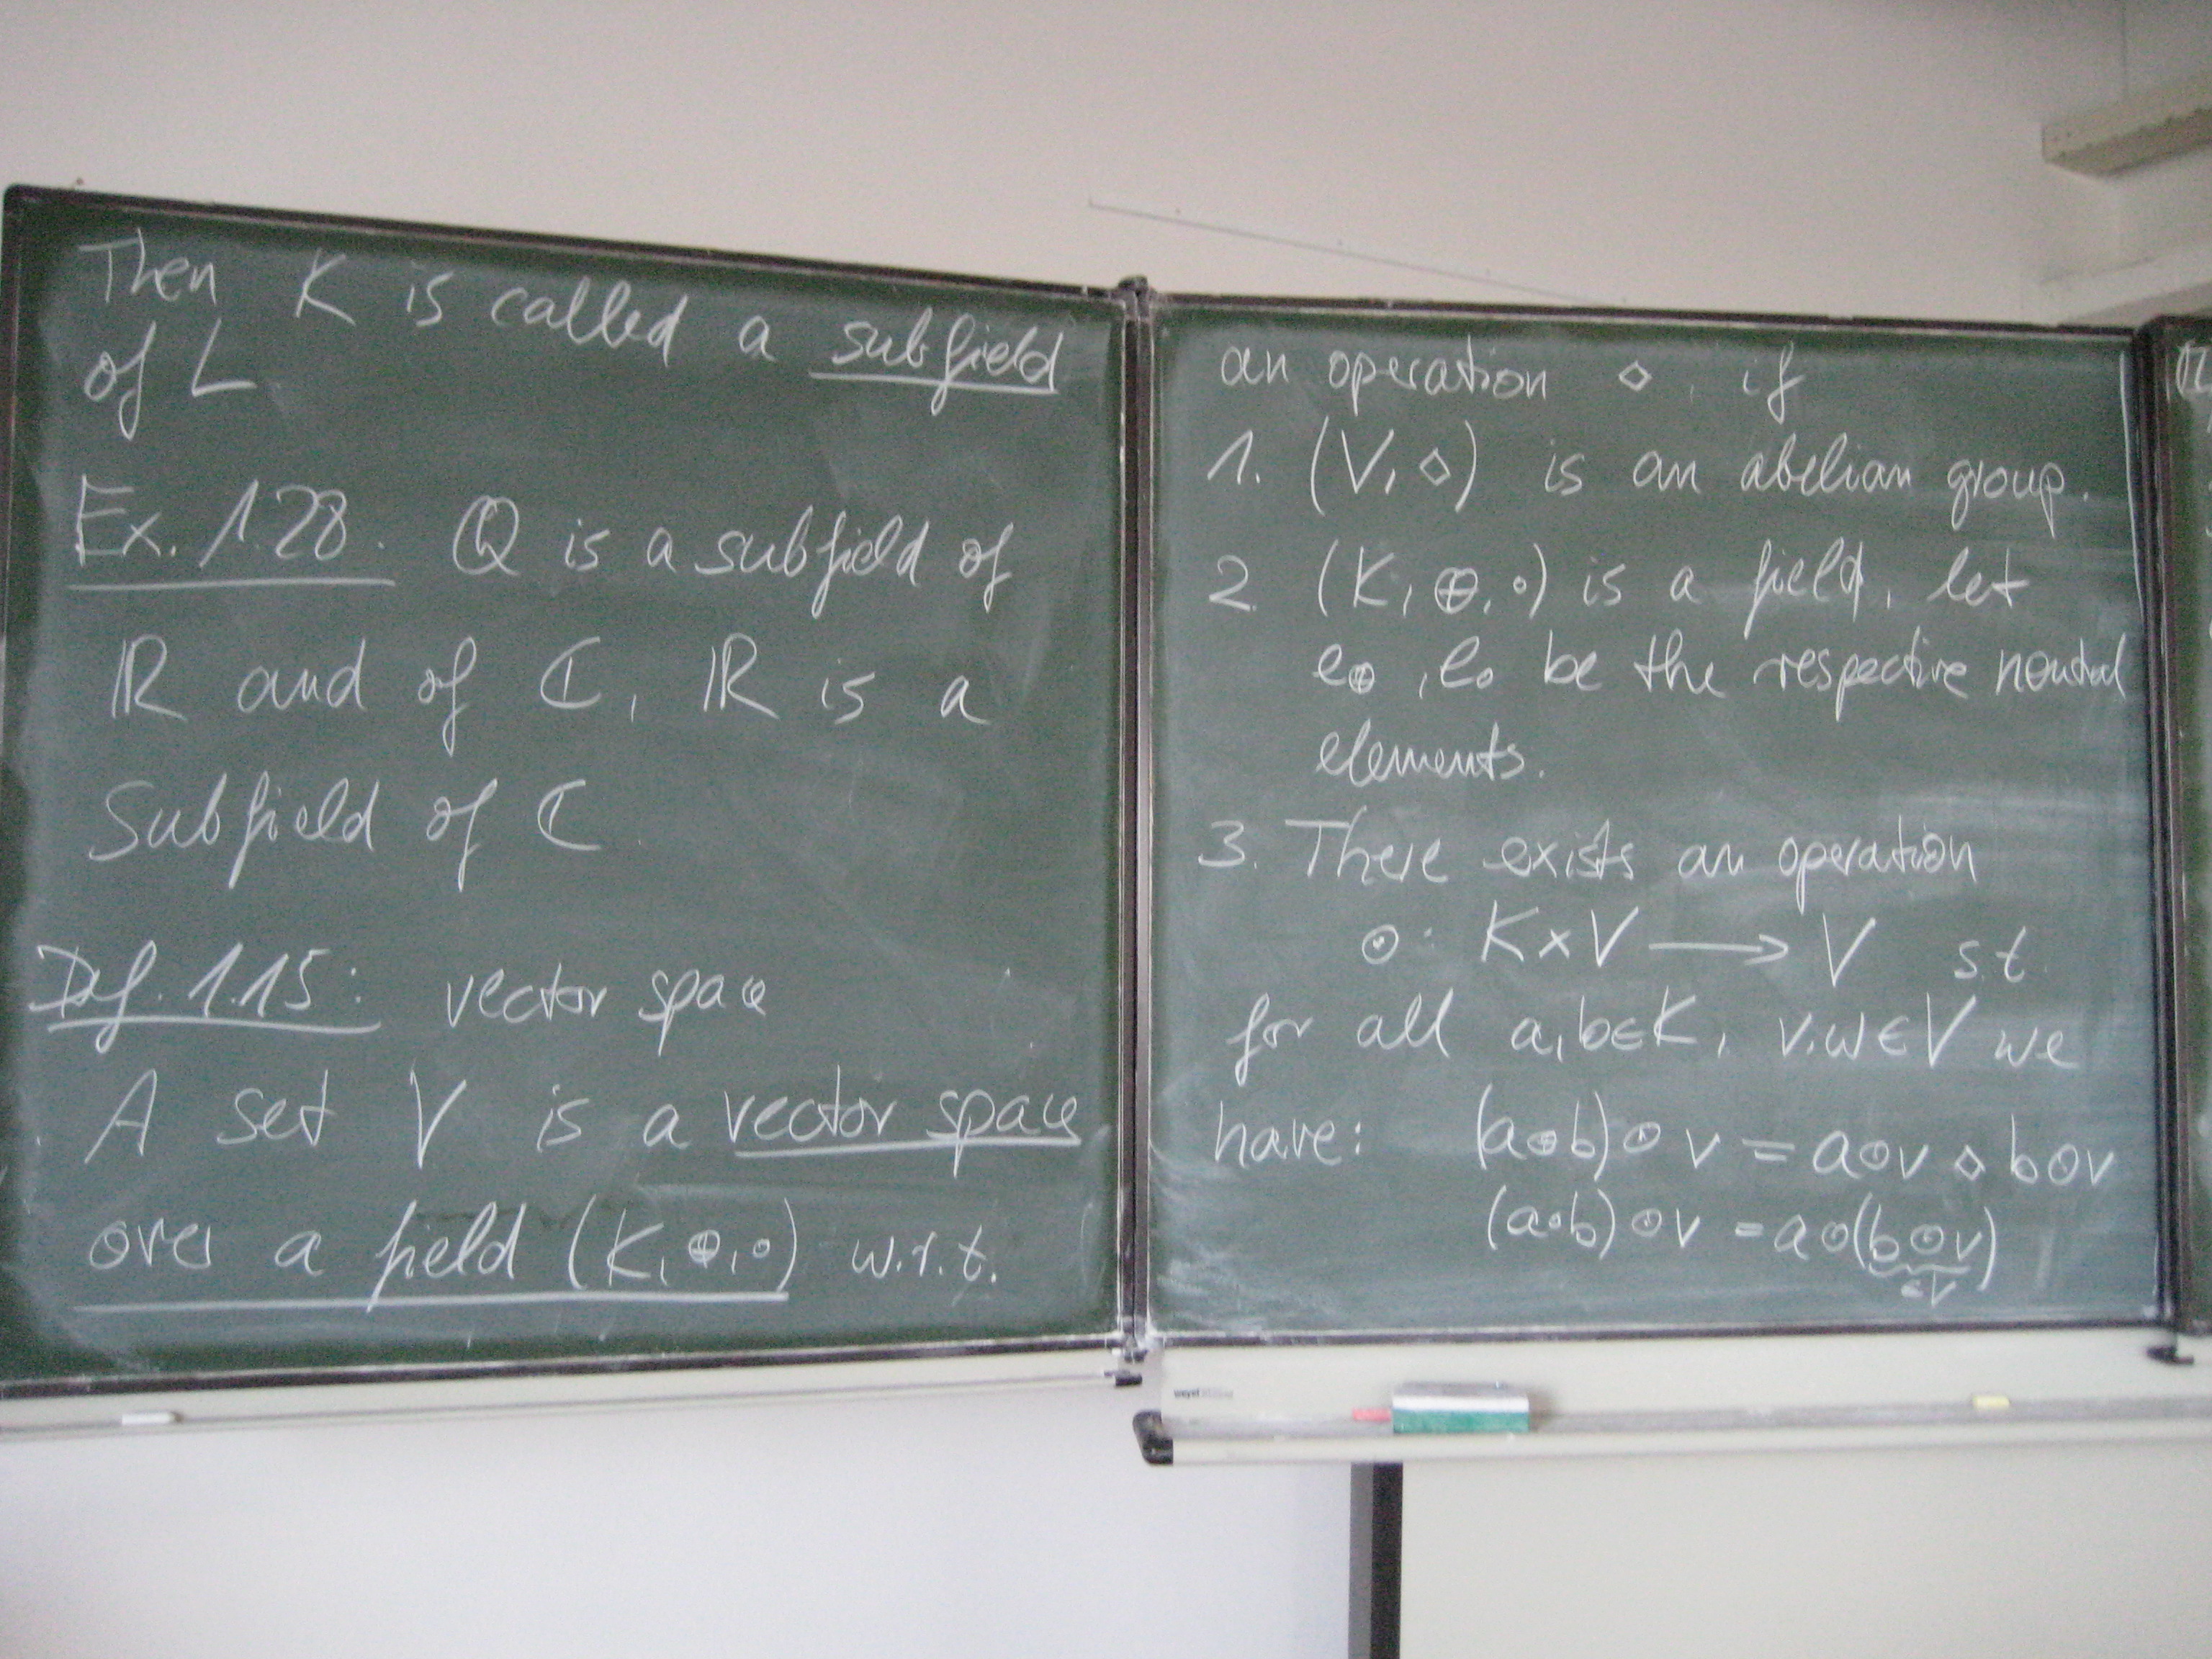 Then K is called a subfield
of L
Ex. 1.28. ℚ is a subfield of
ℝ and of ℂ, ℝ is a
Subfield of ℂ
Def. 1.15: vector space
A set V is a vector space
over a field (K, ⊕, ∘) w.r.t.
an operation ⋄, if
1. (V, ⋄) is an abelian group.
2. (K, ⊕, ∘) is a field, let
e⊕, e∘ be the respective neutral
elements.
3. There exists an operation
⊙: K×V ⟶ V s.t.
for all a, b∈K, v, w∈V we
have: (a⊕b)⊙v = a⊙v ⋄ b⊙v
(a∘b)⊙v = a⊙(b⊙v)
∈V